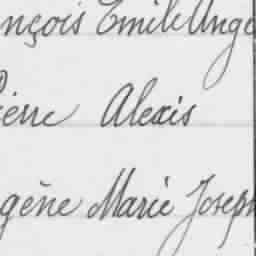 nçois Emile Ange
Pierre Alexis
gène Marie Joseph